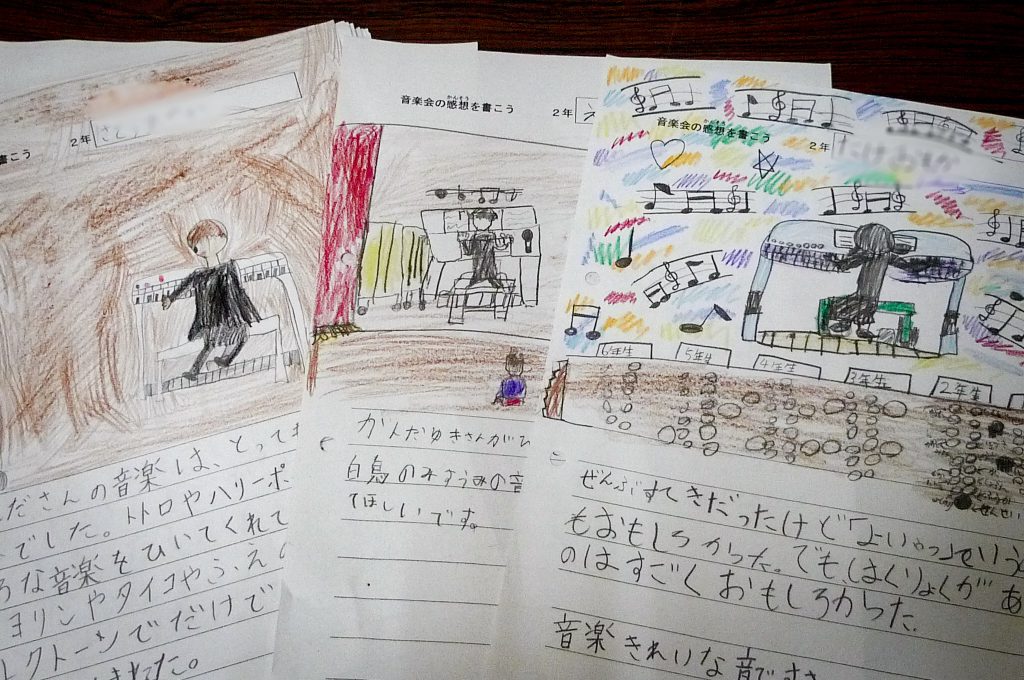 書こう
2年
ださんの音楽は、とっても
でした。トトロやハリーポ
ろな音楽をひいてくれて
ヨリンやタイコやふえの
レクトーンでだけで
音楽会の感想を書こう
かんそう
2年
かんだゆきさんがひ
白鳥のみずうみの音
てほしいです。
音楽会の感想を書こう
かんそう
2年
6年生
5年生
4年生
3年生
2年生
ぜんぶすてきだったけど「よいやっ」という
もおもしろかった。でも、はくりょくがあ
のはすごくおもしろかった
音楽きれいな音で